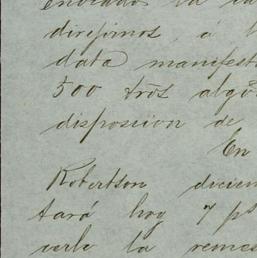 enviados la ca
dirijimos, á l
data manifest
500 trós algo
disposicion de
En
Robertson dicien
tará hoy 7 ps
verle la remes